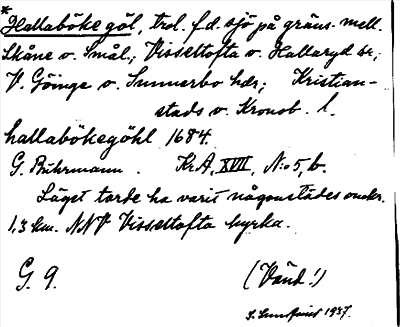 * Hallaböke göl, trol. f.d. sjö på gräns. mell.
Skåne o. Smål.; Visseltofta o. Hallaryd sr;
V. Göinge o. Sunnerbo hdr; Kristian-
stads o. Kronob. l.
hallabökegöhl 1684.
G. Buhrmann. KrA, XVII, N:o 5, b.
Läget torde ha varit någonstädes omkr.
1,3 km. NNV Visseltofta kyrka.
G. 9. (Vänd!)
1937.